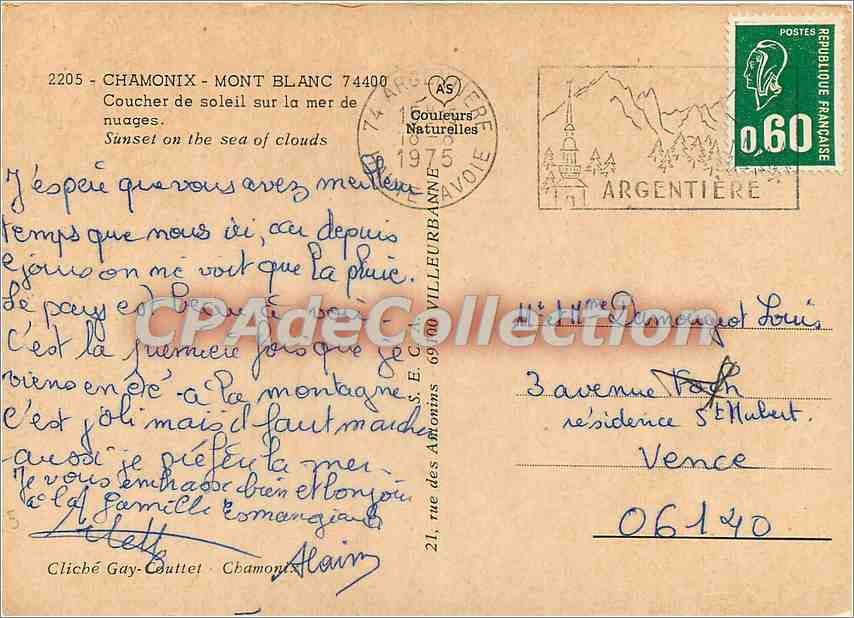 2205 - CHAMONIX - MONT BLANC 74400
Coucher de soleil sur la mer de
nuages.
Sunset on the sea of clouds
AS
Couleurs
Naturelles
74 ARGENTIERE
18 -8
1975
HAUTE-SAVOIE
ARGENTIÈRE
POSTES
REPUBLIQUE FRANÇAISE
0,60
J'espère que vous avez meilleur
temps que nous ici, car depuis
jours on ne voit que la pluie.
Le pays est beau à voir
c'est la première fois que je
viens en été à la montagne.
C'est joli mais il faut marcher
aussi je préfère la mer.
Je vous embrasse bien et bonjour
à la famille
Alain
Cliché Gay-Couttet - Chamonix
21, rue des Antonins 69100 VILLEURBANNE
S. E. C. A.
CPAdeCollection
Mr et Mme Damougeot Louis
3 avenue Foch
résidence St Hubert.
Vence
06140